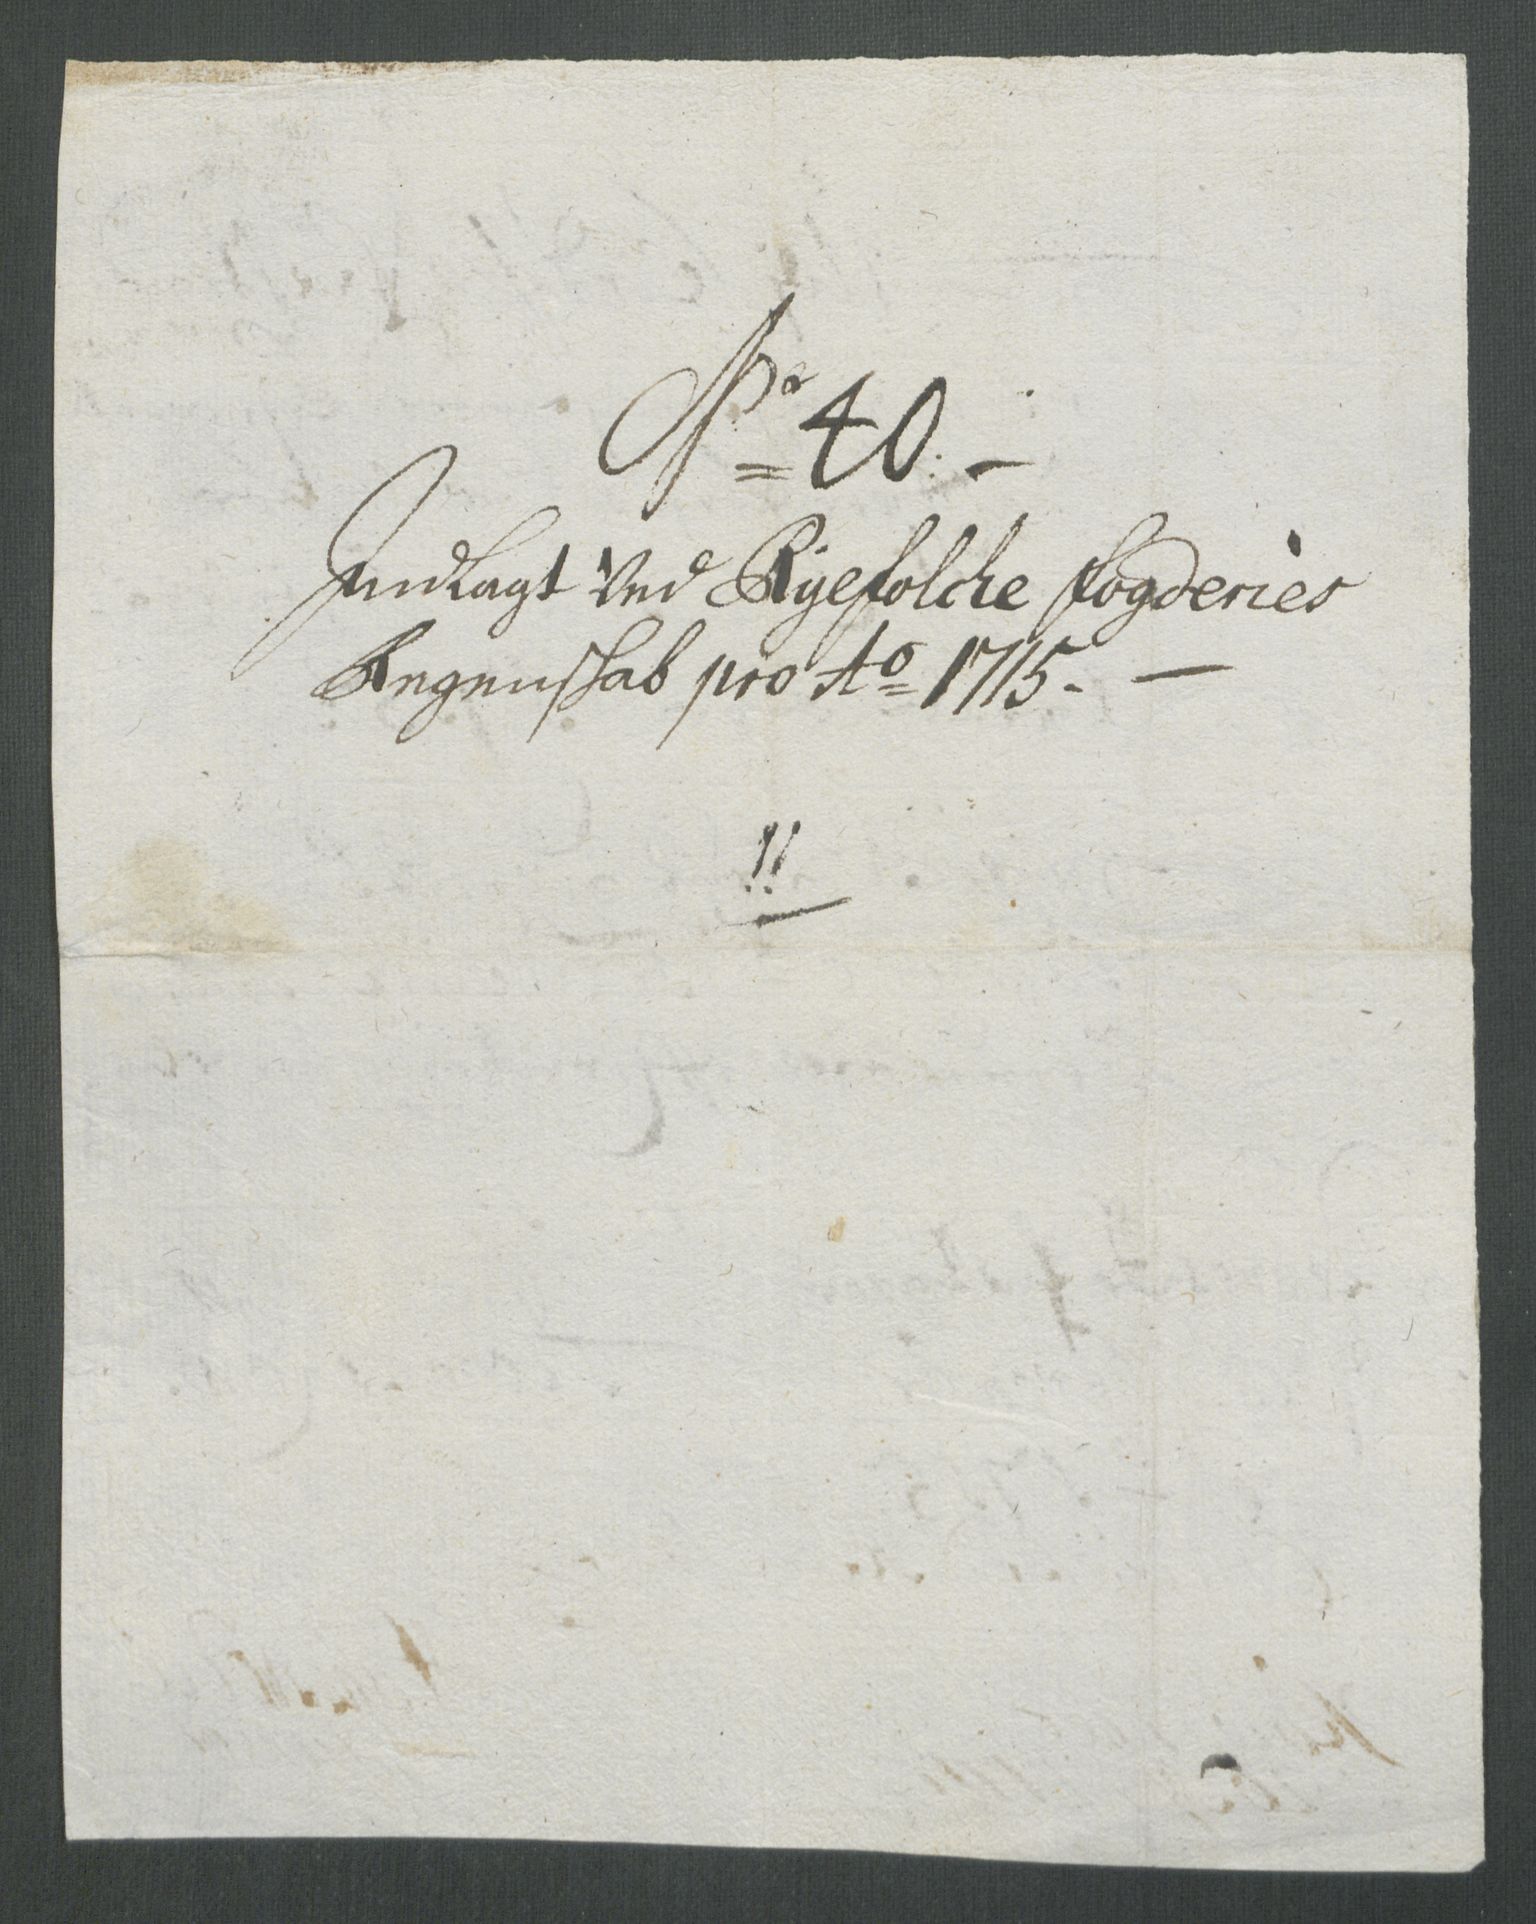 No. 40. —
Indlagt Ved Ryefolche fogderies
Regenskab pro Ao 1715. —